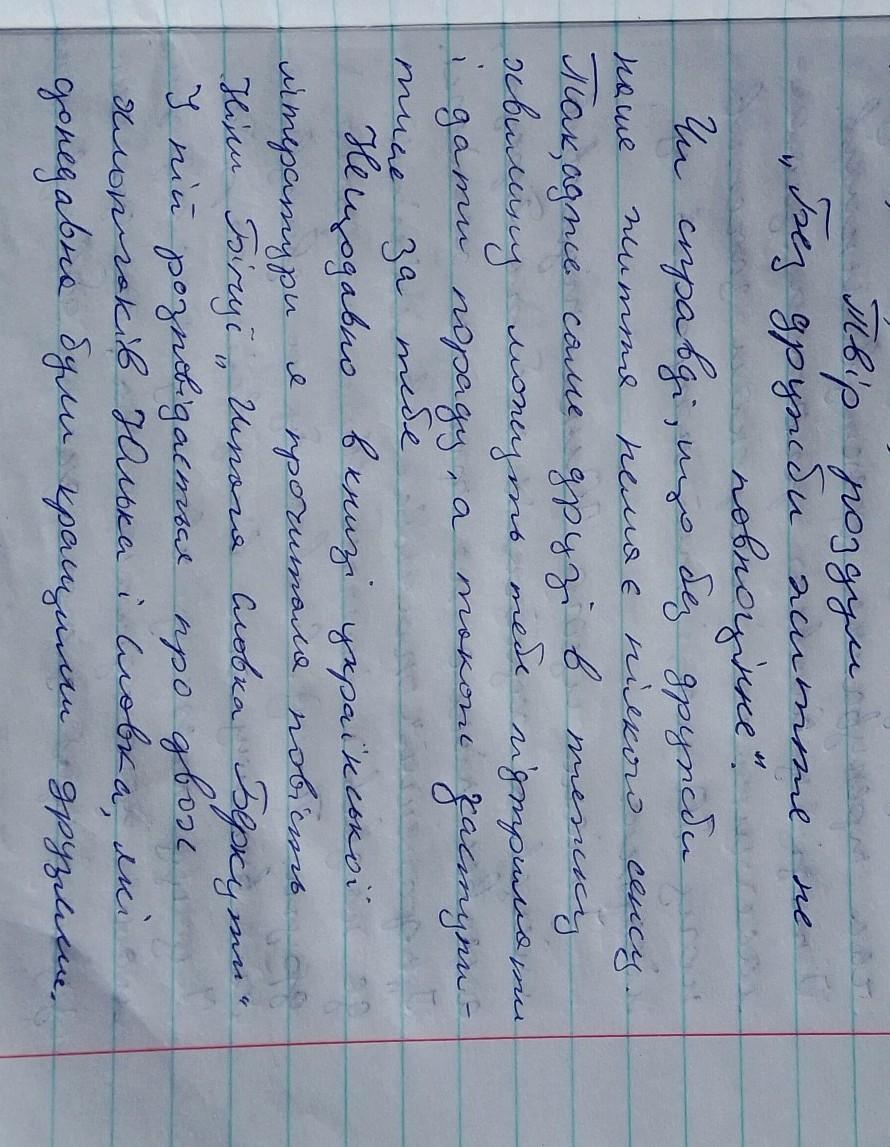 Твір роздум
„Без дружби життя не
повноцінне".
Чи справді, що без дружби
наше життя немає ніякого сенсу.
Так, адже саме друзі в тяжку
хвилину можуть тебе підтримати
і дати пораду, а також заступи-
тися за тебе
Нещодавно в книзі української
літератури я прочитала повість
Ніни Бічуї „Шпага Славка Беркути"
У ній розповідається про двох
хлопчаків Юлька і Славка, які
донедавна були кращими друзями.